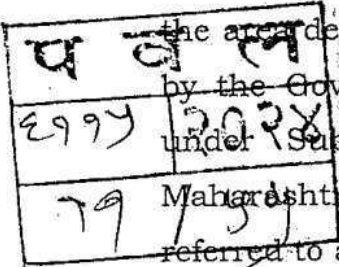 प व ल
६११५ २०२४
the area de
by the Gov
under Sub
Maharasht
referred to a